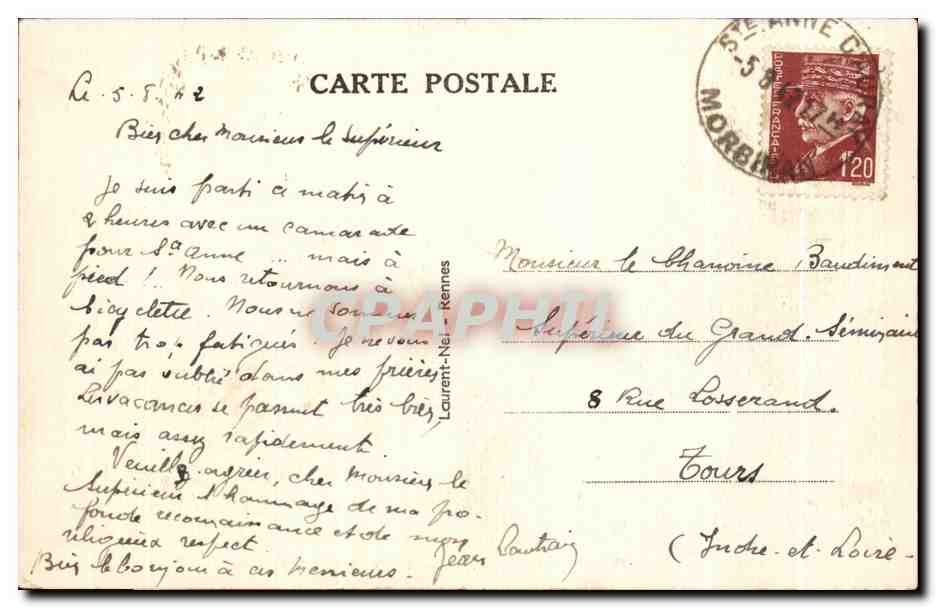 CARTE POSTALE
STE ANNE
-5 8 42 17 H
MORBIHAN
POSTES FRANÇAISES
1F20
Le 5.8.42
Bien cher Monsieur le Supérieur
Je suis parti ce matin à
2 heures avec un camarade
pour Ste Anne ... mais à
pied ! Nous retournons à
bicyclette. Nous ne sommes
pas trop fatigués. Je ne vous
ai pas oublié dans mes prières
Les vacances se passent très bien,
mais assez rapidement.
Veuillez agréer, cher Monsieur le
Supérieur l'hommage de ma pro-
fonde reconnaissance et de mon
religieux respect.
Jean
Bien le bonjour à ces messieurs.
Laurent-Nel - Rennes
Monsieur le Chanoine Baudiment
Supérieur du Grand Séminaire
8 Rue Losserand.
Tours
(Indre-et-Loire-
CPAPHIL